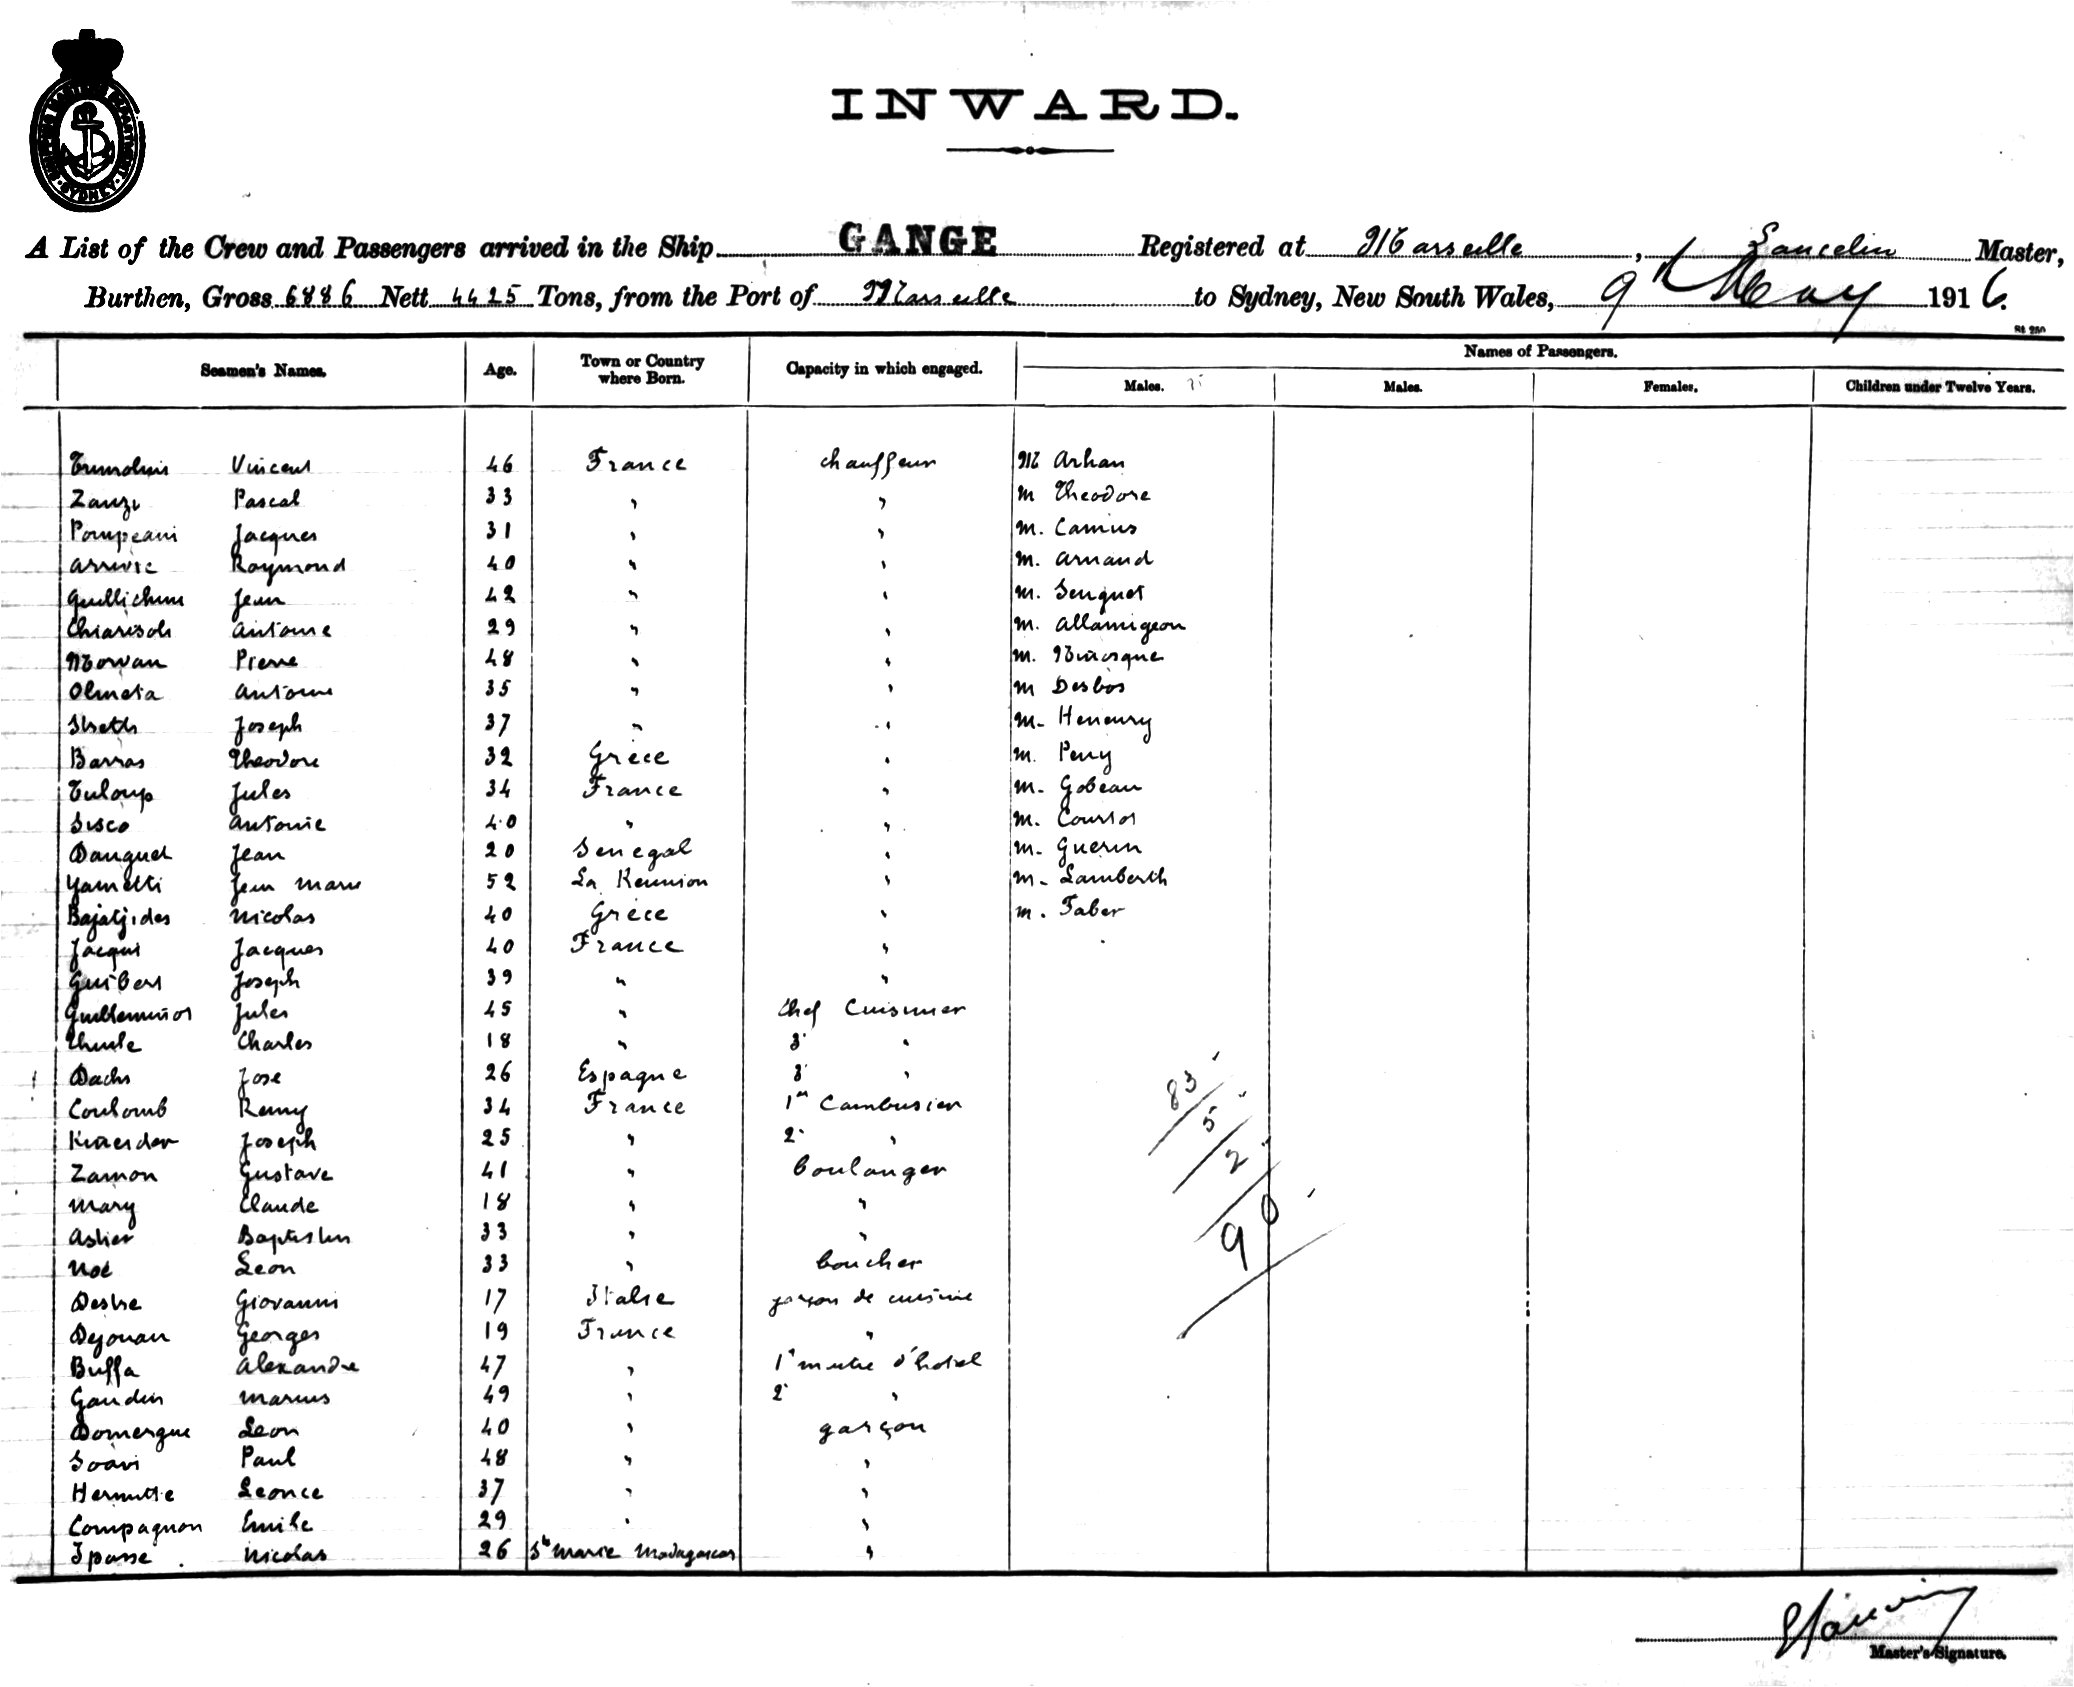 INWARD.
A List of the Crew and Passengers arrived in the Ship GANGE Registered at Marseille, Lancelin Master,
Burthen, Gross 6886 Nett 4425 Tons, from the Port of Marseille to Sydney, New South Wales, 9th May 1916.
Seamen's Names. Age. Town or Country where Born. Capacity in which engaged. Names of Passengers.
Males. Males. Females. Children under Twelve Years.
Vincent 46 France chauffeur M Arhan
Zanzi Pascal 33 " " M Theodore
Pompeani Jacques 31 " " M. Camus
Arrivie Raymond 40 " " M. Arnaud
Jean 42 " " M. Senquet
Chiarisoli Antoine 29 " " M. Allamigeon
Morvan Pierre 48 " " M.
Olmeta Antoine 35 " " M Desbos
Joseph 37 " " M.
Barras Theodore 32 Grèce " M. Peny
Tuloup Jules 34 France " M. Gobeau
Sisco Antoine 40 " " M. Courtot
Danguet Jean 20 Senegal " M. Guerin
Jean Marie 52 La Reunion " M. Lamberth
Nicolas 40 Grèce " M. Faber
Jacqui Jacques 40 France "
Guibert Joseph 39 " "
Guilleminot Jules 45 " Chef Cuisinier
Charles 18 " 3e "
Dachs Jose 26 Espagne 3e "
Coulomb Remy 34 France 1er Cambusier
Joseph 25 " 2e "
Zamon Gustave 41 " boulanger
Mary Claude 18 " "
Astier Baptistin 33 " "
Noé Leon 33 " boucher
Giovanni 17 Italie garçon de cuisine
Dejouan Georges 19 France "
Buffa Alexandre 47 " 1er maitre d'hotel
Gaudin Marius 49 " 2e "
Domergue Leon 40 " garçon
Soavi Paul 48 " "
Hermitte Leonce 37 " "
Compagnon Emile 29 " "
Nicolas 26 Ste Marie Madagascar "
83
5
2
90
Master's Signature.